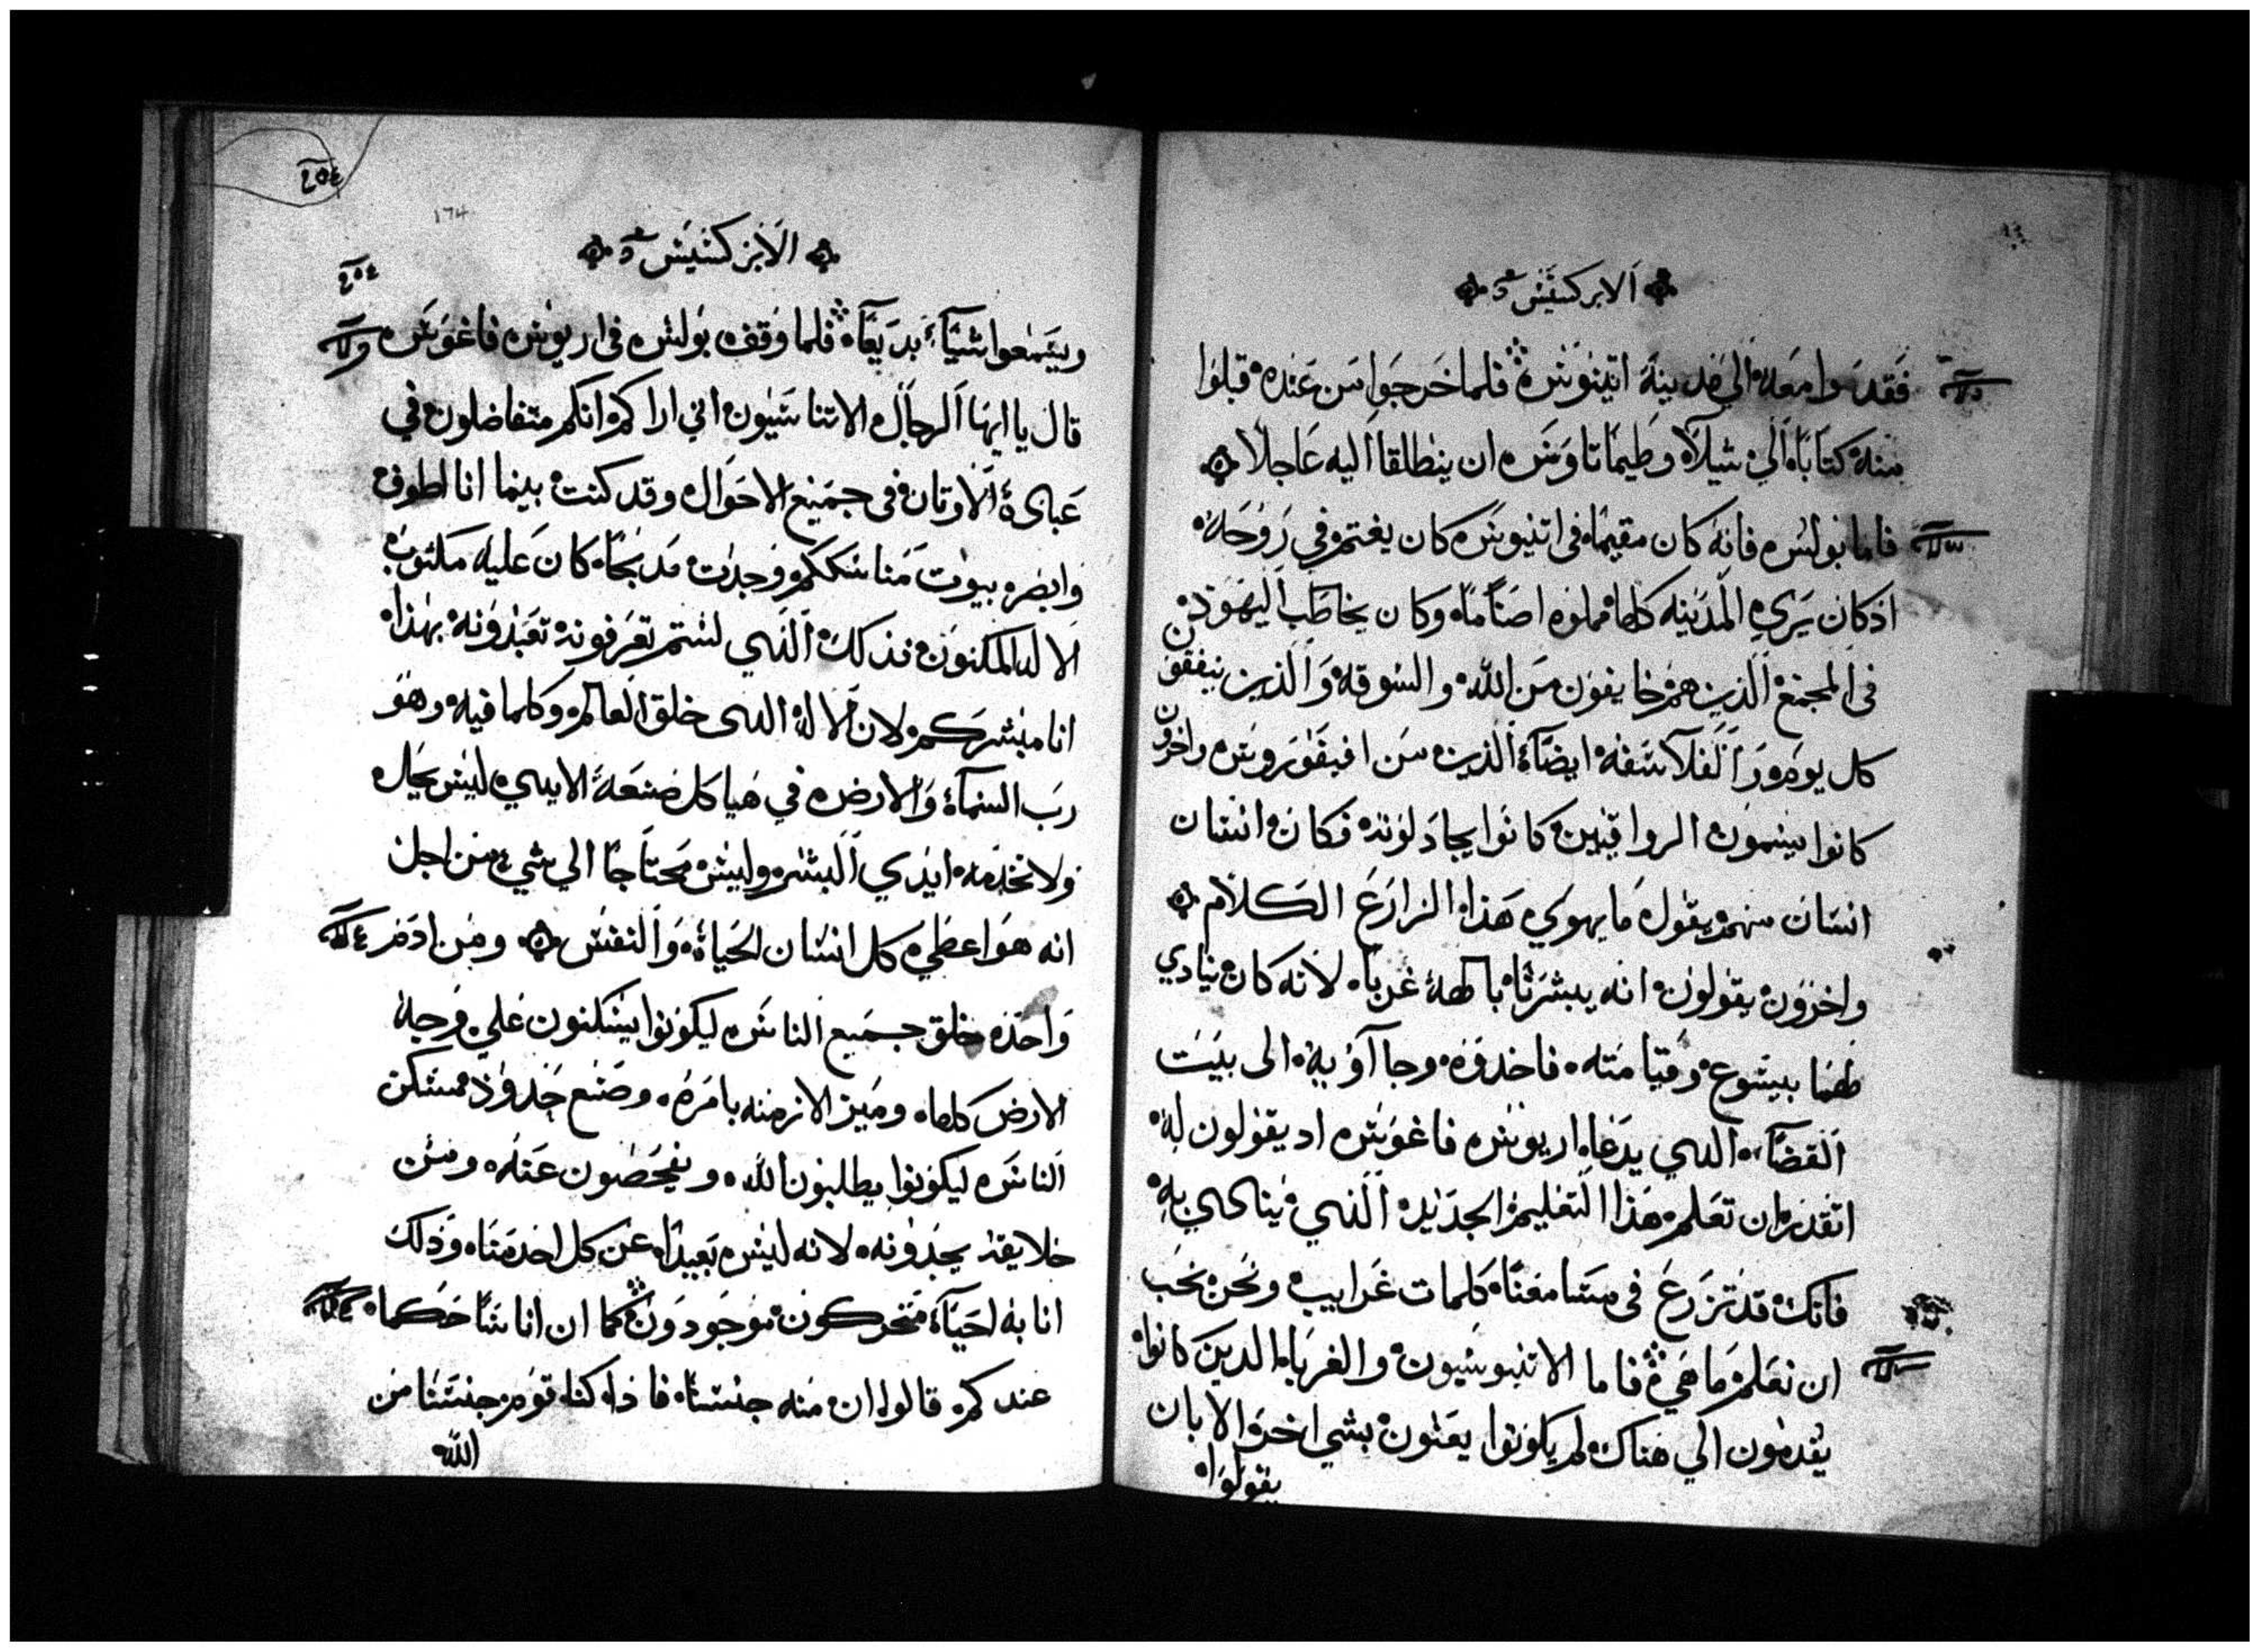 الابركسيس
فقدموا معه الي مدينة اتينوس فلما خرجوا من عنده قبلوا
منه كتابا الي شيلا وطيماتاوس ان ينطلقا اليه عاجلا
فاما بولس فانه كان مقيما في اتنيوس كان يغتم في روحه
اذ كان يري المدينه كلها مملوه اصناما وكان يخاطب اليهود
في المجمع الذين هم خايفون من الله والسوقه والذين يتفقون
كل يوم والفلاسفه ايضا الذين من افيقوروس واخرون
كانوا يسمون الرواقيين كانوا يجادلونه فكان انسان
انسان منهم يقول ما يهوي هذا الزارع الكلام
واخرون يقولون انه يبشرنا بالهة غربا لانه كان ينادي
لهم بيسوع وقيامته فاخدوه وجاآوا به الى بيت
القضاء الدي يدعا اريوس فاغوس اد يقولون له
اتقدر ان تعلم هذا التعليم الجديد الذي ينادي به
فانك قد تزرع في مسامعنا كلمات غرايب ونحن نحب
ان نعلم ما هي فاما الاتنيوسيون والغربا الدين كانوا
يقدمون الي هناك لم يكونوا يعنون بشي اخر الا بان
يقولوا
٢٥٤
174
الابركسيس
٢٥٤
ويسمعوا شيا بديعا فلما وقف بولس في اريوس فاغوس
قال يا ايها الرجال الاتناسيون اني اراكم انكم متفاضلون في
عبادة الاوتان في جميع الاحوال وقد كنت بينما انا اطوف
وابصر بيوت مناسككم وجدت مدبحا كان عليه مكتوب
الاله المكنون فذلك الذي لستم تعرفونه تعبدونه بهذا
انا مبشركم لان الاله الدي خلق العالم وكلما فيه وهو
رب السماء والارض في هياكل صنعة الايدي ليس يحل
ولا تخدمه ايدي البشر وليس محتاجا الي شي من اجل
انه هو اعطي كل انسان الحياة والنفس ومن ادم
واحد خلق جميع الناس ليكونوا يسكنون علي وجه
الارض كلها وميز الازمنه بامره وصنع حدود مسكن
الناس ليكونوا يطلبون الله ويفحصون عنه ومن
خلايقه يجدونه لانه ليس بعيدا عن كل احد منا وذلك
انا به احياء متحركون موجودون كما ان اناسا حكما
عندكم قالوا ان منه جنسنا فاذا كنا قوم جنسنا من
الله